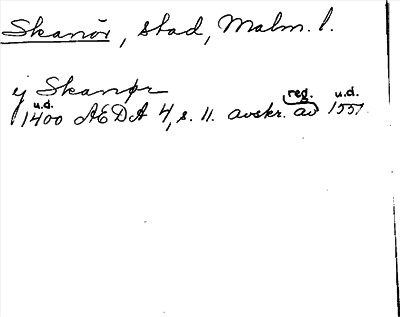 Skanör, stad, Malm. l.
ij Skanør
u.d. reg. u.d.
1400 AEDA 4, s. 11. avskr. av 1551.